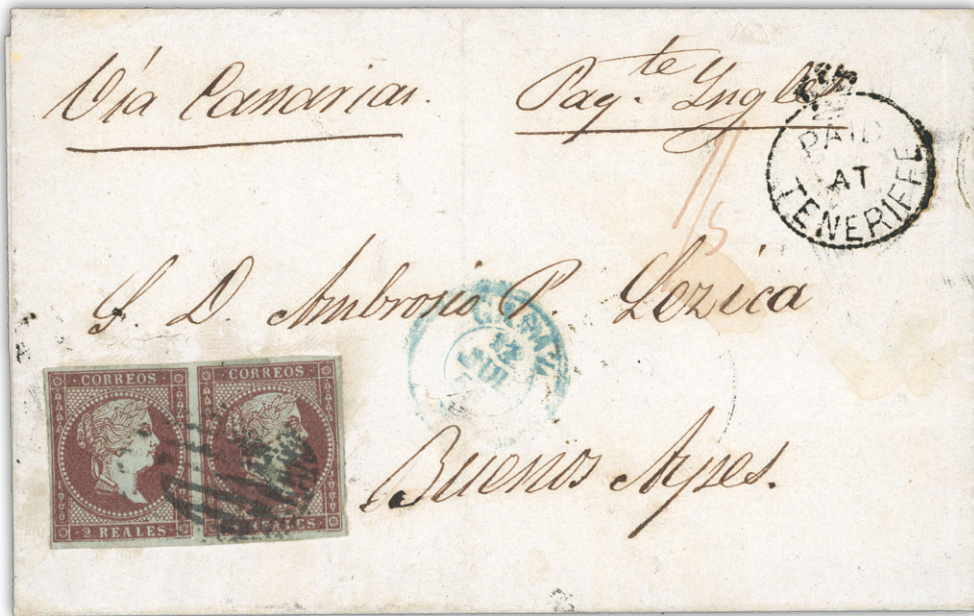 Vía Canarias.
Paq.te Ingles
PAID
AT
TENERIFFE
1/5
S. D. Ambrosio P. Lezica
CORREOS
2 REALES
CORREOS
Buenos Ayres.